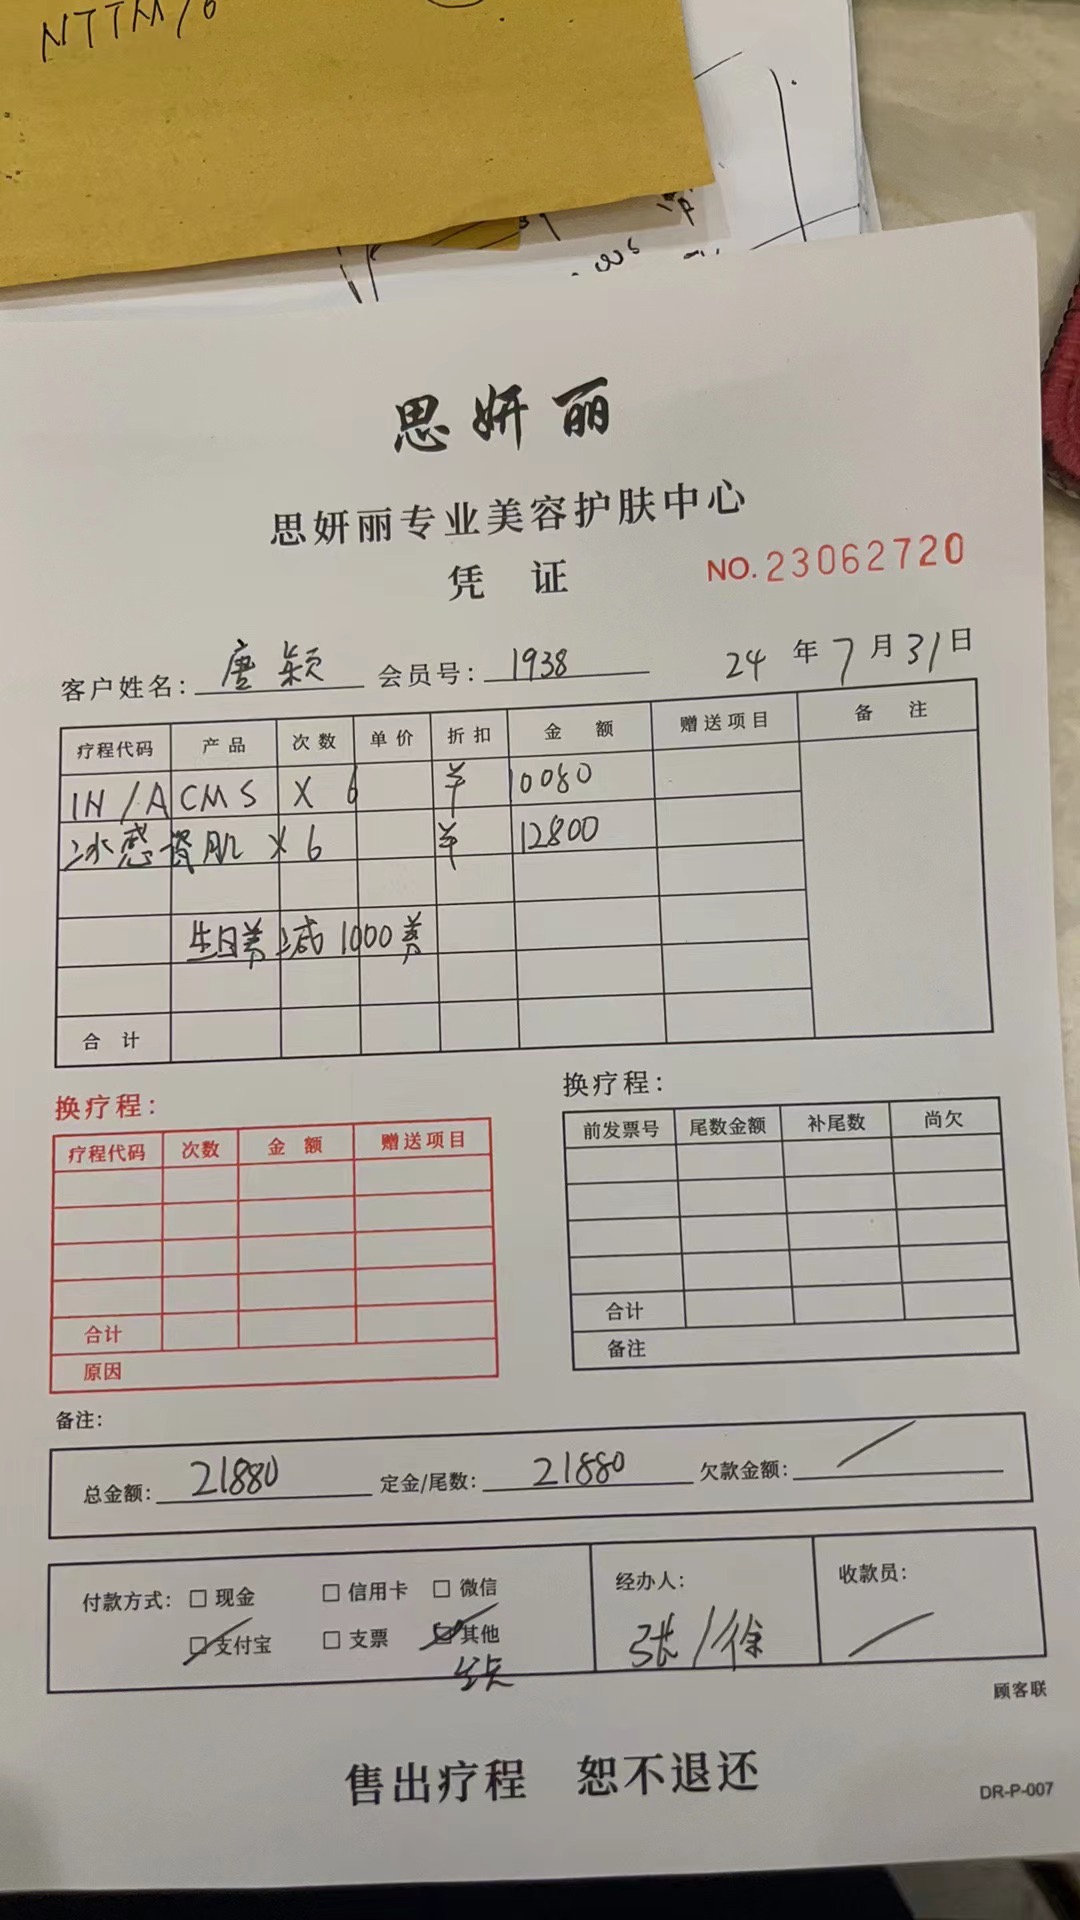 NTTM/6
思妍丽
思妍丽专业美容护肤中心
凭 证
NO.23062720
客户姓名：唐颖 会员号：1938 24 年 7 月 31 日
疗程代码 产品 次数 单价 折扣 金 额 赠送项目 备 注
1N/A CMS X 6 ¥ 10080
冰感瓷肌 X 6 ¥ 12800
生日美 减 1000 美
合 计
换疗程：
疗程代码 次数 金 额 赠送项目
合计
原因
换疗程：
前发票号 尾数金额 补尾数 尚欠
合计
备注
备注：
总金额：21880 定金/尾数：21880 欠款金额：/
付款方式：□ 现金 □ 信用卡 □ 微信
□ 支付宝 □ 支票 □ 其他
经办人：
张/徐
收款员：
/
顾客联
售出疗程 恕不退还
DR-P-007